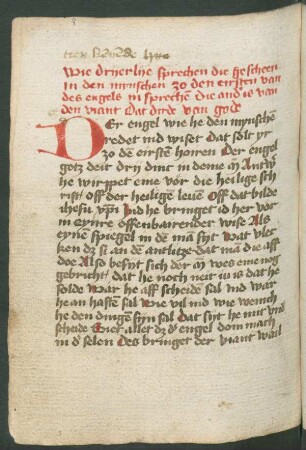 Wie drijerlije sprechen die gescheen
in den mynschen zo den eirsten van
des engels in sprechen die ander is van
den viant dat dirde van gode
Der engel wie he den mynschen
redet ind wiset dat solt yr
zo dem eirsten hoiren Der engel
gotz deit dry dinc in deme
he wirpet eme vor die heilige schrift
off der heilige leuen Off dat bilde
ihesu xpi Ind he bringet id her vort
in eynre offenbairender wise Als
eyne spiegel in den man syt wat vlecken
he an dem antlitze dat man die aff
doe Also besyt sich der wes eme noch
gebricht dat he noch neit in is dat he
solde war he aff scheide sal ind war
he an haften sal wie vil ind wie wenich
he den dingen syn sal dat syt he mit
scheide Hier allet der engel dom mach
in der selen des bringet der viant wail